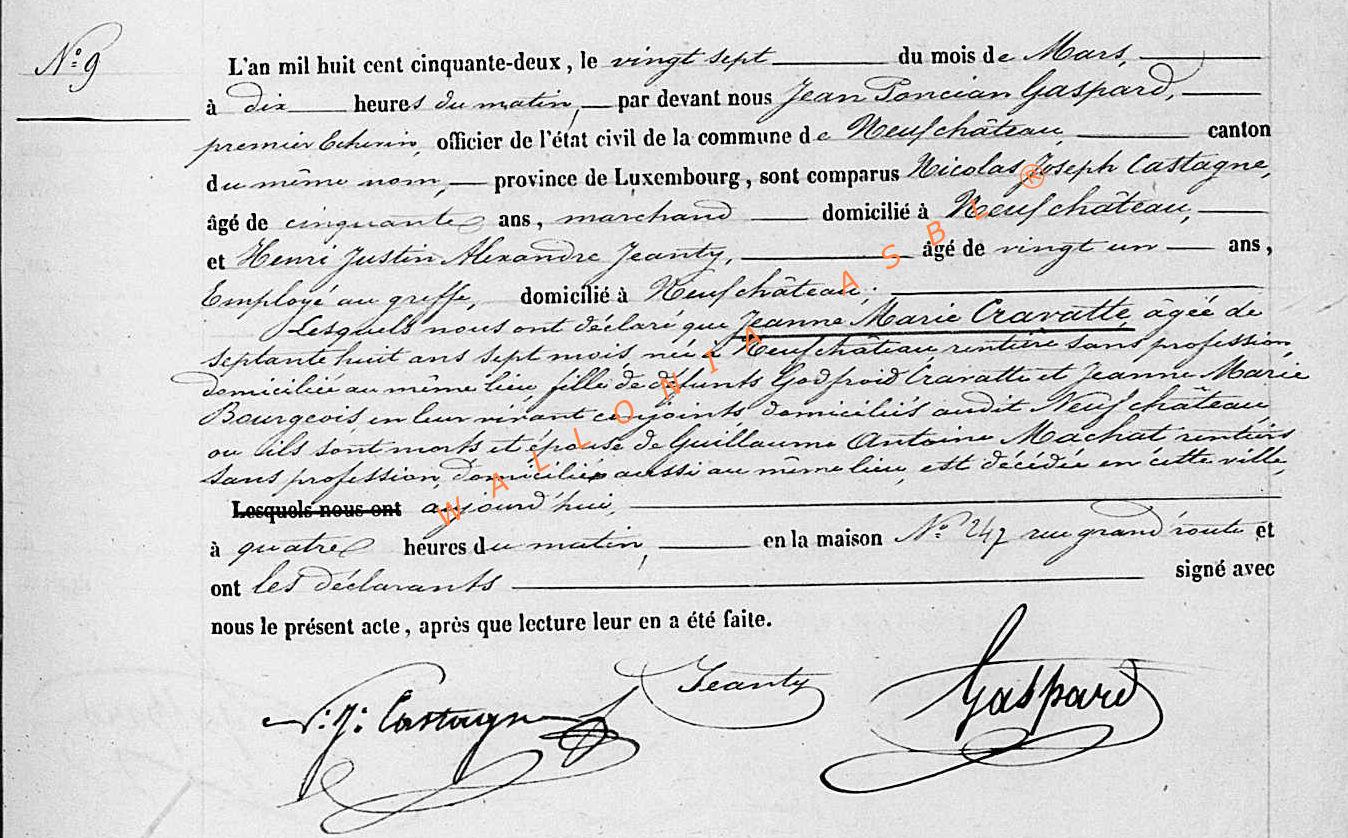 N° 9
L'an mil huit cent cinquante-deux, le vingt sept du mois de Mars,
à dix heures du matin, par devant nous Jean Poncian Gaspard,
premier Echevin, officier de l'état civil de la commune de Neufchâteau, canton
du même nom, province de Luxembourg, sont comparus Nicolas Joseph Castagne,
âgé de cinquante ans, marchand domicilié à Neufchâteau,
et Henri Justin Alexandre Jeanty, âgé de vingt un ans,
Employé au greffe, domicilié à Neufchâteau;
Lesquels nous ont déclaré que Jeanne Marie Cravatte, âgée de
septante huit ans sept mois née à Neufchâteau, rentière sans profession,
domiciliée au même lieu, fille de défunts Godfroid Cravatte et Jeanne Marie
Bourgeois, en leur vivant conjoints domiciliés audit Neufchâteau
ou ils sont morts et épouse de Guillaume Antoine Machat rentiers
sans profession, domiciliés aussi au même lieu, est décédée en cette ville,
Lesquels nous ont aujourd'hui,
à quatre heures du matin, en la maison N° 247 rue grand'route et
ont les déclarants signé avec
nous le présent acte, après que lecture leur en a été faite.
N: J: Castagne Jeanty Gaspard
WALLONIA ASBL ®